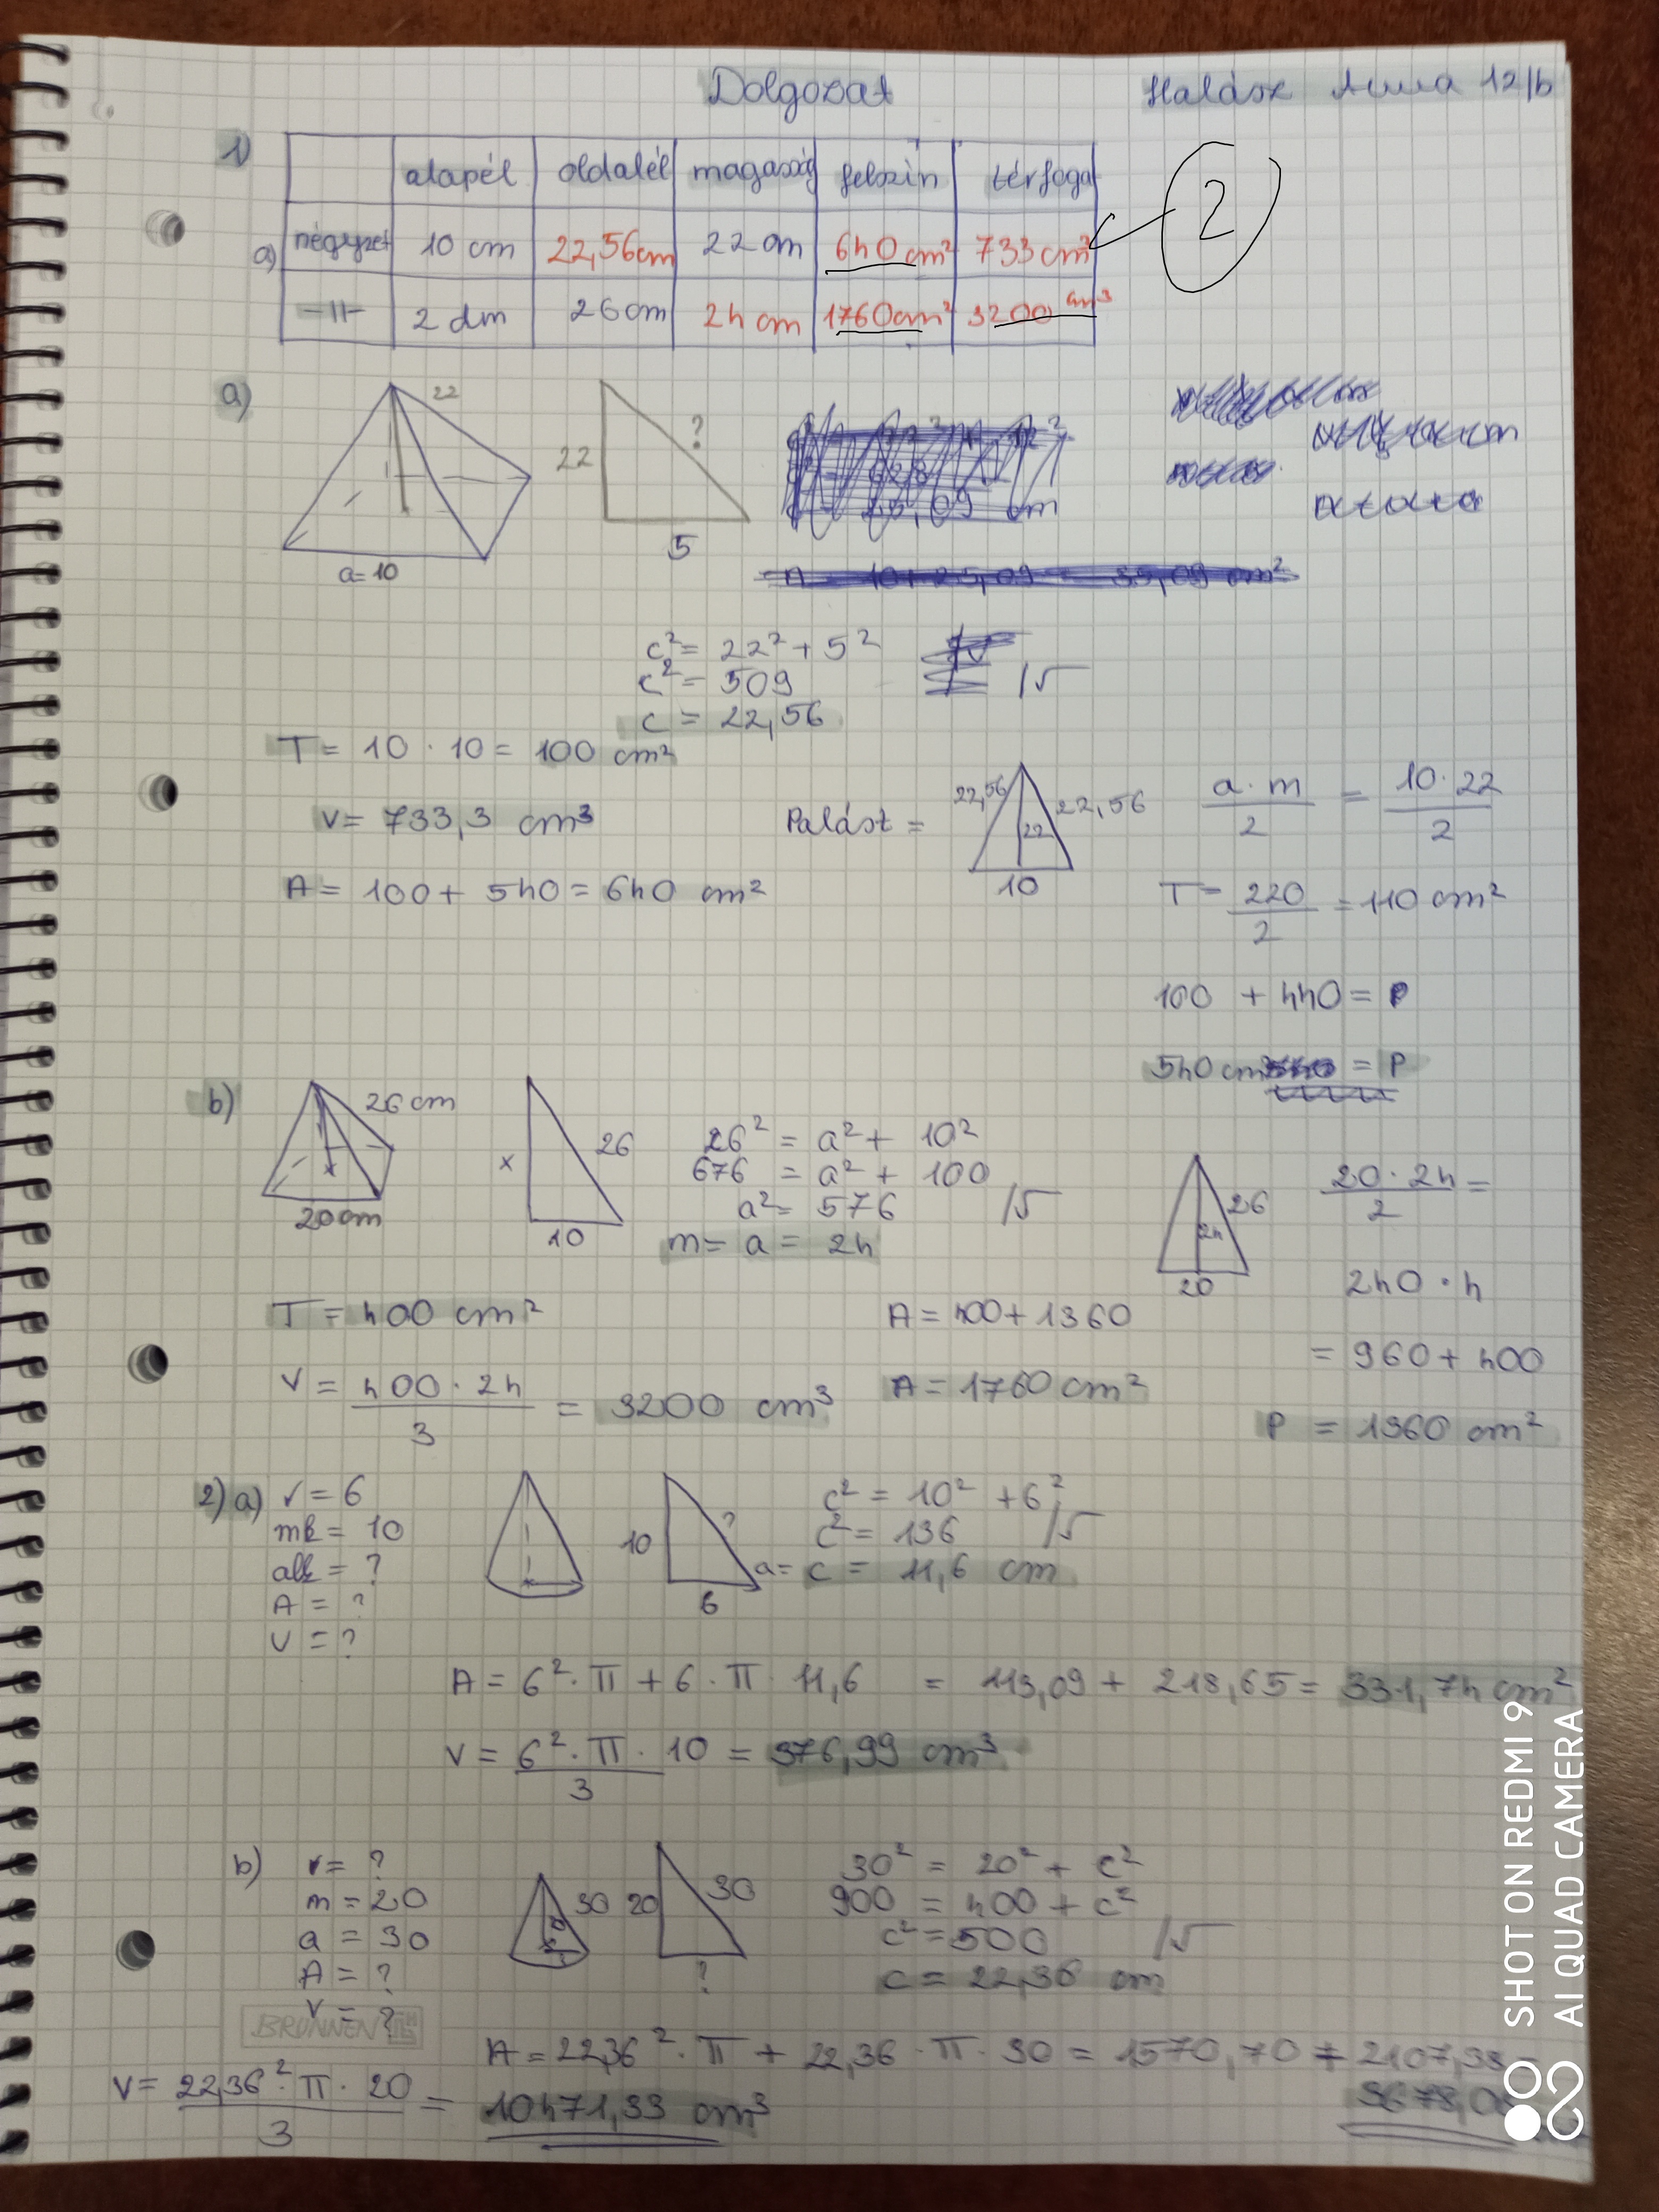 Dolgozat Halász Anna 12/b
1)
alapél oldalél magasság felszín térfogat
a) négyzet 10 cm 22,56cm 22 cm 640cm² 733cm³ 2
-11- 2 dm 26cm 24 cm 1760cm² 3200 cm³
a) 22
22 ?
5
a=10
c² = 22² + 5²
c² = 509 /√
c = 22,56
T = 10 · 10 = 100 cm²
V = 733,3 cm³
Palást = 22,56 22,56 22 10
a·m/2 = 10·22/2
A = 100 + 540 = 640 cm²
T = 220/2 = 110 cm²
100 + 440 = P
540 cm = P
b) 26 cm
20cm
x 26
10
26² = a² + 10²
676 = a² + 100
a² = 576 /√
m = a = 24
26 24 20
20·24/2 =
240 · 4
= 960 + 400
P = 1360 cm²
T = 400 cm²
V = 400·24/3 = 3200 cm³
A = 400 + 1360
A = 1760 cm²
2) a) r = 6
mk = 10
alk = ?
A = ?
V = ?
10 ?
6
c² = 10² + 6²
c² = 136 /√
a = c = 11,6 cm
A = 6²·π + 6·π·11,6 = 113,09 + 218,65 = 331,74 cm²
V = 6²·π·10/3 = 376,99 cm³
b) r = ?
m = 20
a = 30
A = ?
V = ?
30 20 30
?
30² = 20² + c²
900 = 400 + c²
c² = 500 /√
c = 22,36 cm
BRUNNEN
A = 22,36²·π + 22,36·π·30 = 1570,70 + 2107,38 =
V = 22,36²·π·20/3 = 10471,33 cm³
SHOT ON REDMI 9
AI QUAD CAMERA